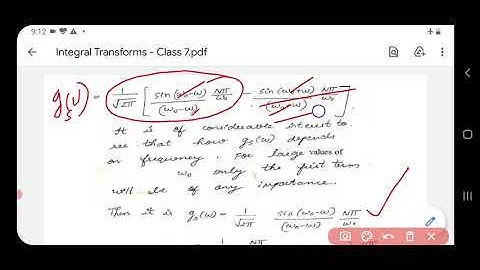 9:12
Integral Transforms - Class 7.pdf
g_s(ν) = 1/√2π [ sin(ω₀-ω) Nπ/ω₀ / (ω₀-ω) - sin(ω₀+ω) Nπ/ω₀ / (ω₀+ω) ]
It is of considerable interest to
see that how g_s(ω) depends
on frequency. For large values of
ω₀ only the first term
will be of any importance.
Then it is g_s(ω) = 1/√2π sin(ω₀-ω) / (ω₀-ω) Nπ/ω₀